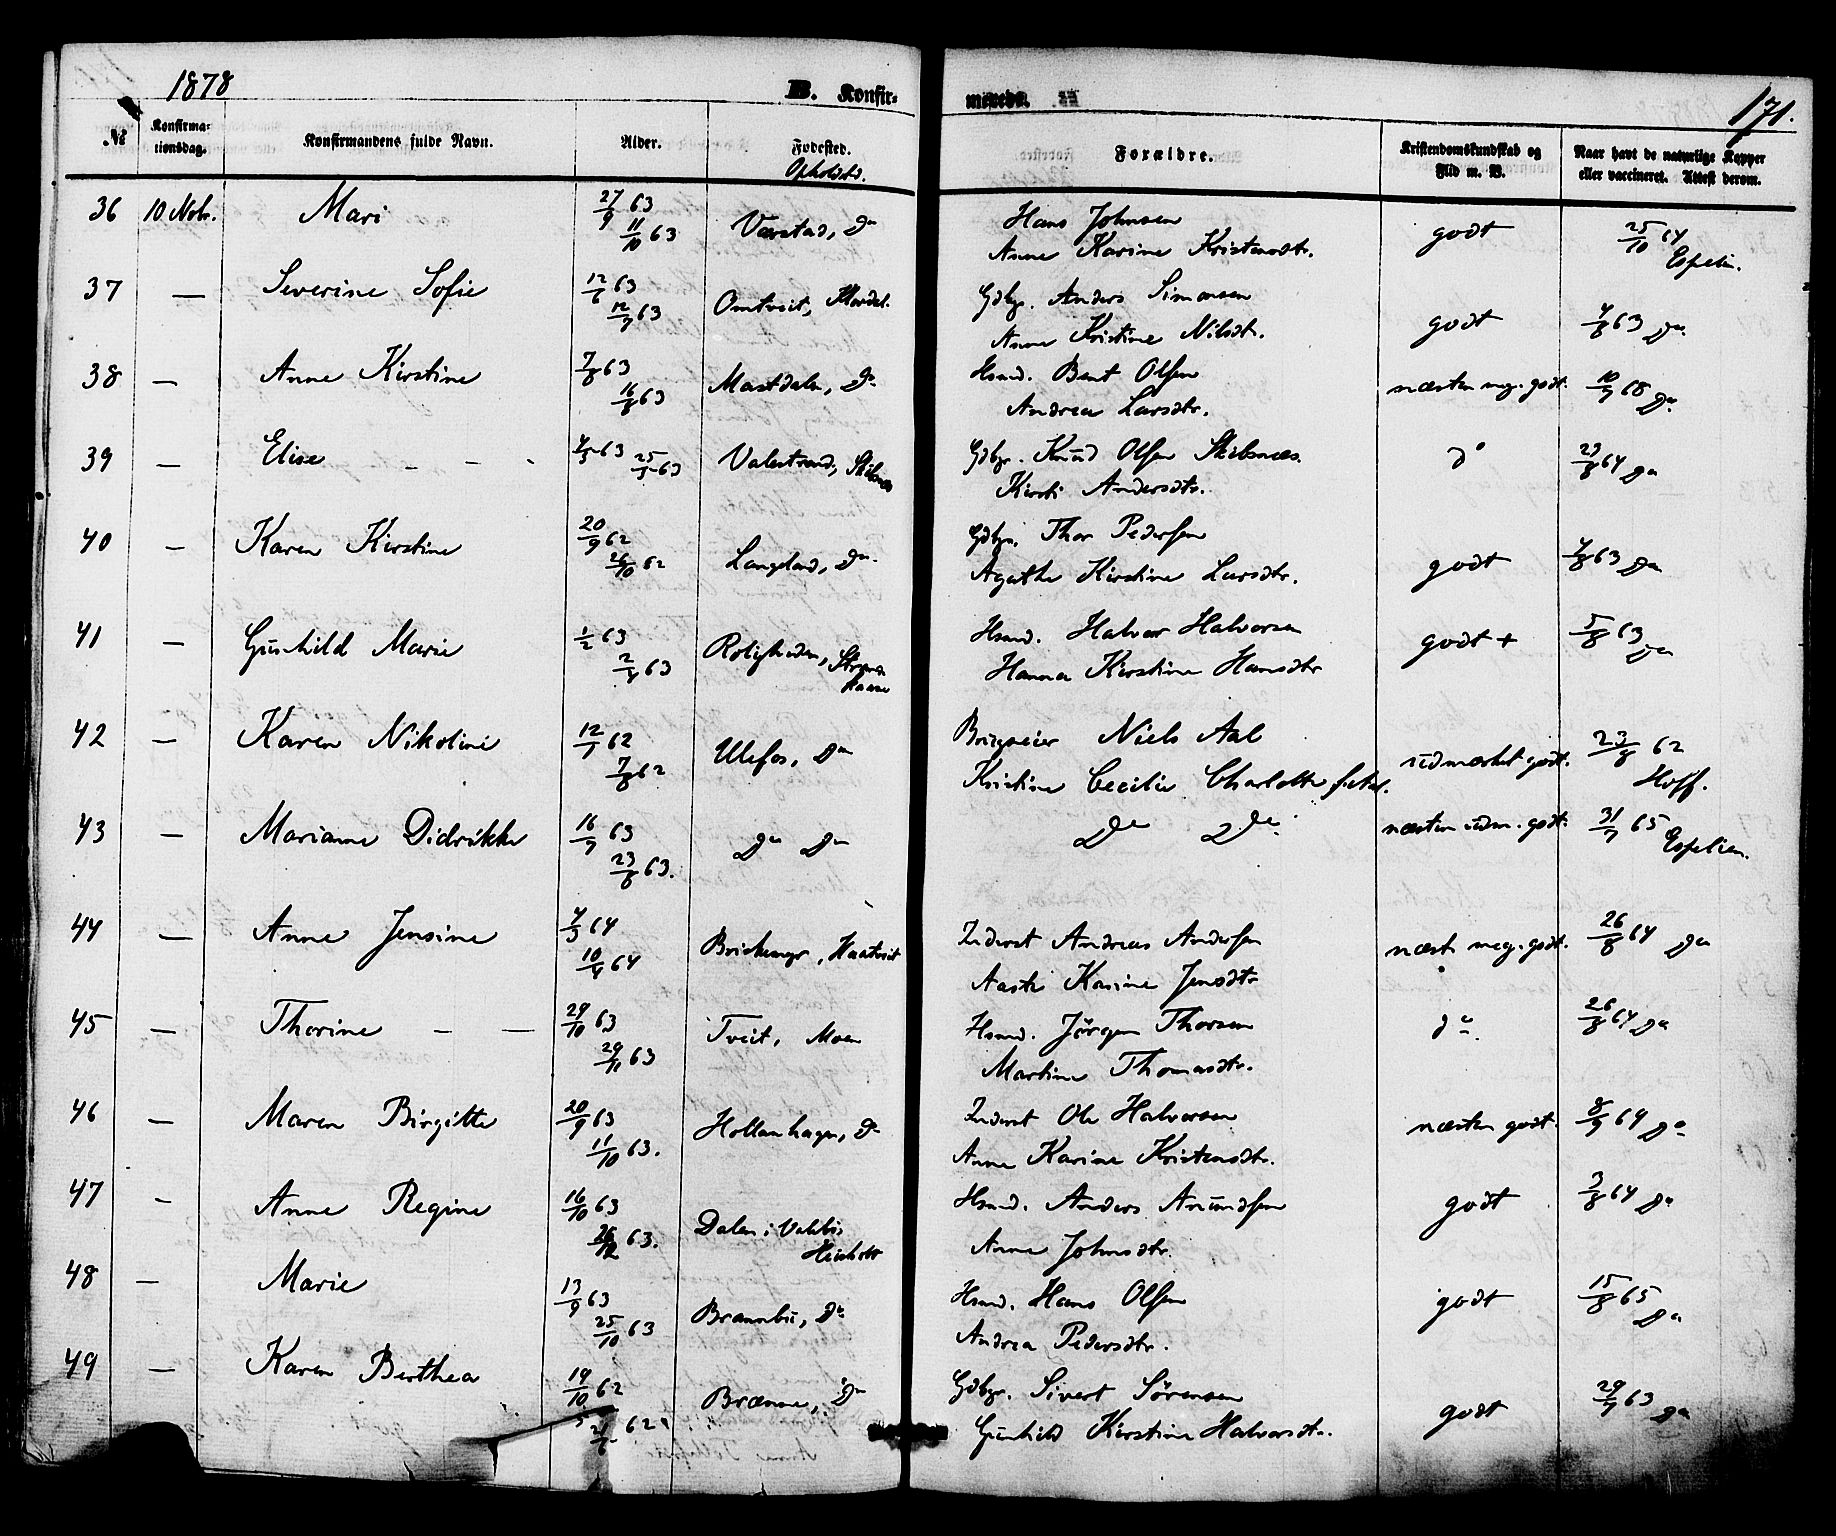 1878
B. Konfir-
merede.
171.
№
Konfirma-
tionsdag.
Konfirmandens fulde Navn.
Alder.
Fødested.
Opholdsted.
Forældre.
Kristendomskundskab og
Flid m. V.
Naar havt de naturlige Kopper
eller vaccineret. Attest derom.
36 10 Nobr. Mari 27/9 63 Værstad, Do Hans Johnsen godt 25/10 64
11/10 63 Anne Karine Kristensdtr. Espelin.
37 — Severine Sofie 12/6 63 Omtveit, Gdbgr. Anders Simonsen godt 4/8 63 Do
12/7 63 Anne Kristine Nilsdt.
38 — Anne Kirstine 7/8 63 Mastdalen, Do Hsmd. Bent Olsen næsten meg. godt. 10/9 68 Do
16/8 63 Andrea Larsdtr.
39 — Elise - - - 4/5 63 Valestrand, Skilsnæs Gdbgr. Knud Olsen Skilsnæs. do 23/8 64 Do
25/5 63 Kirsti Andersdtr.
40 — Karen Kirstine 20/9 62 Langland, Do Gdbgr. Thor Pedersen godt 4/8 63 Do
26/10 62 Agathe Kirstine Larsdtr.
41 — Gunhild Marie 1/2 63 Roligheden, Hsmd. Halvor Halvorsen godt + 5/8 63 Do
2/4 63 Hanna Kirstine Hansdtr
42 — Karen Nikoline 12/7 62 Ulefos, Do Brugseier Niels Aal udmærket godt. 23/8 62
7/8 62 Kristine Cecilie Charlotte f. Hoff.
43 — Marianne Didrikke 16/7 63 Do Do Do Do næsten udm. godt. 31/7 65
23/8 63. Espelien.
44 — Anne Jensine 4/3 64 Brickemyr, Haatveit Inderst Andreas Andersen næst. meg. godt. 26/8 64 Do
10/4 64 Aaste Karine Jensdtr
45 — Thorine - — 29/10 63 Tveit, Moen Hsmd. Jørgen Thorsen do 26/8 64 Do
29/11 63 Martine Thomasdtr.
46 — Maren Birgitte 20/9 63 Hollenhagen, Do Inderst Ole Halvorsen næsten godt. 8/9 69 Do
11/10 63. Anne Karine Kristensdtr.
47 — Anne Regine 16/10 63 Dalen i Valebø Hsmd. Anders Amundsen godt 3/8 64 Do
26/12 63. Anne Johnsdtr.
48 — Marie 13/9 63 Brænnbu, Do Hsmd. Hans Olsen godt 15/8 65
25/10 63 Andrea Pedersdtr. Do
49 — Karen Berthea 19/10 62 Brænne, Do Gdbgr. Sivert Sørensen godt 29/7 63 Do
62 Gunhild Kirstine Halvorsdtr.